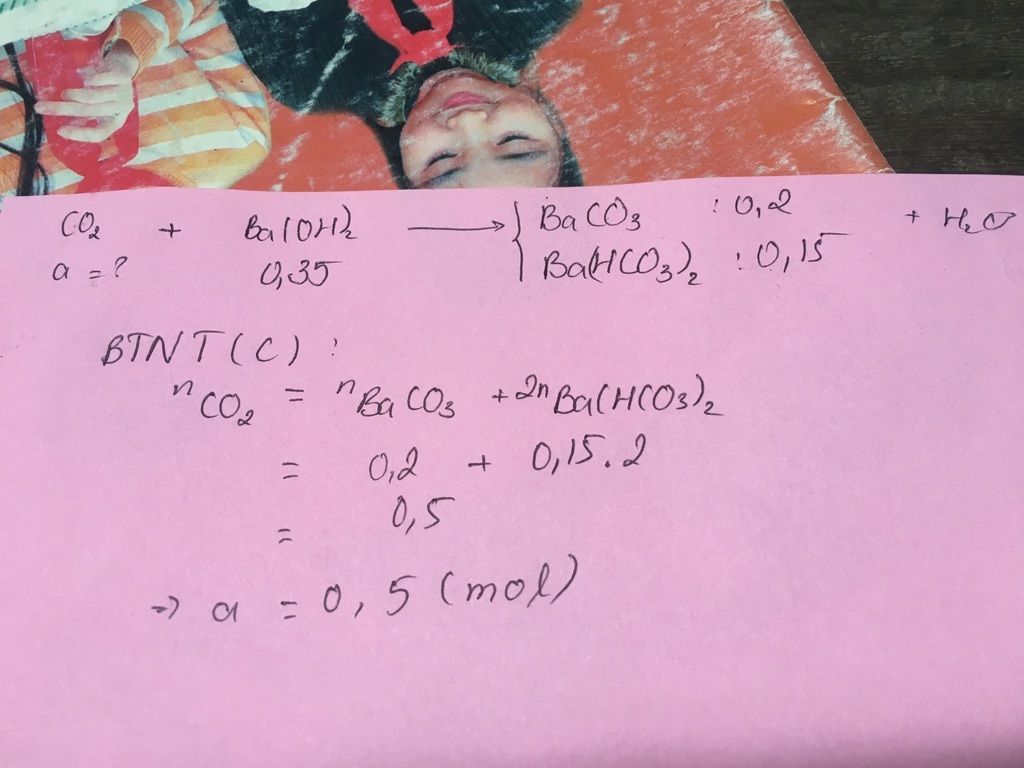 CO₂ + Ba(OH)₂ ⟶ { BaCO₃ : 0,2 + H₂O
a = ? 0,35 Ba(HCO₃)₂ : 0,15
BTNT (C) :
nCO₂ = nBaCO₃ + 2nBa(HCO₃)₂
= 0,2 + 0,15.2
= 0,5
⇒ a = 0,5 (mol)